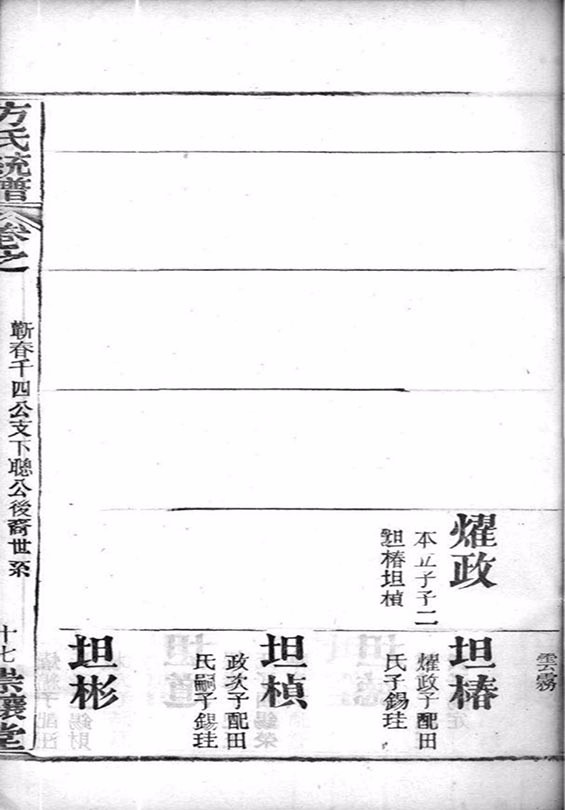 雲霧
燿政
本立子子二
坦椿坦楨
坦椿
燿政子配田
氏子錫珪
坦楨
政次子配田
氏嗣子錫珪
坦彬
方氏統譜
卷之
蘄春千四公支下聰公後裔世系
十七